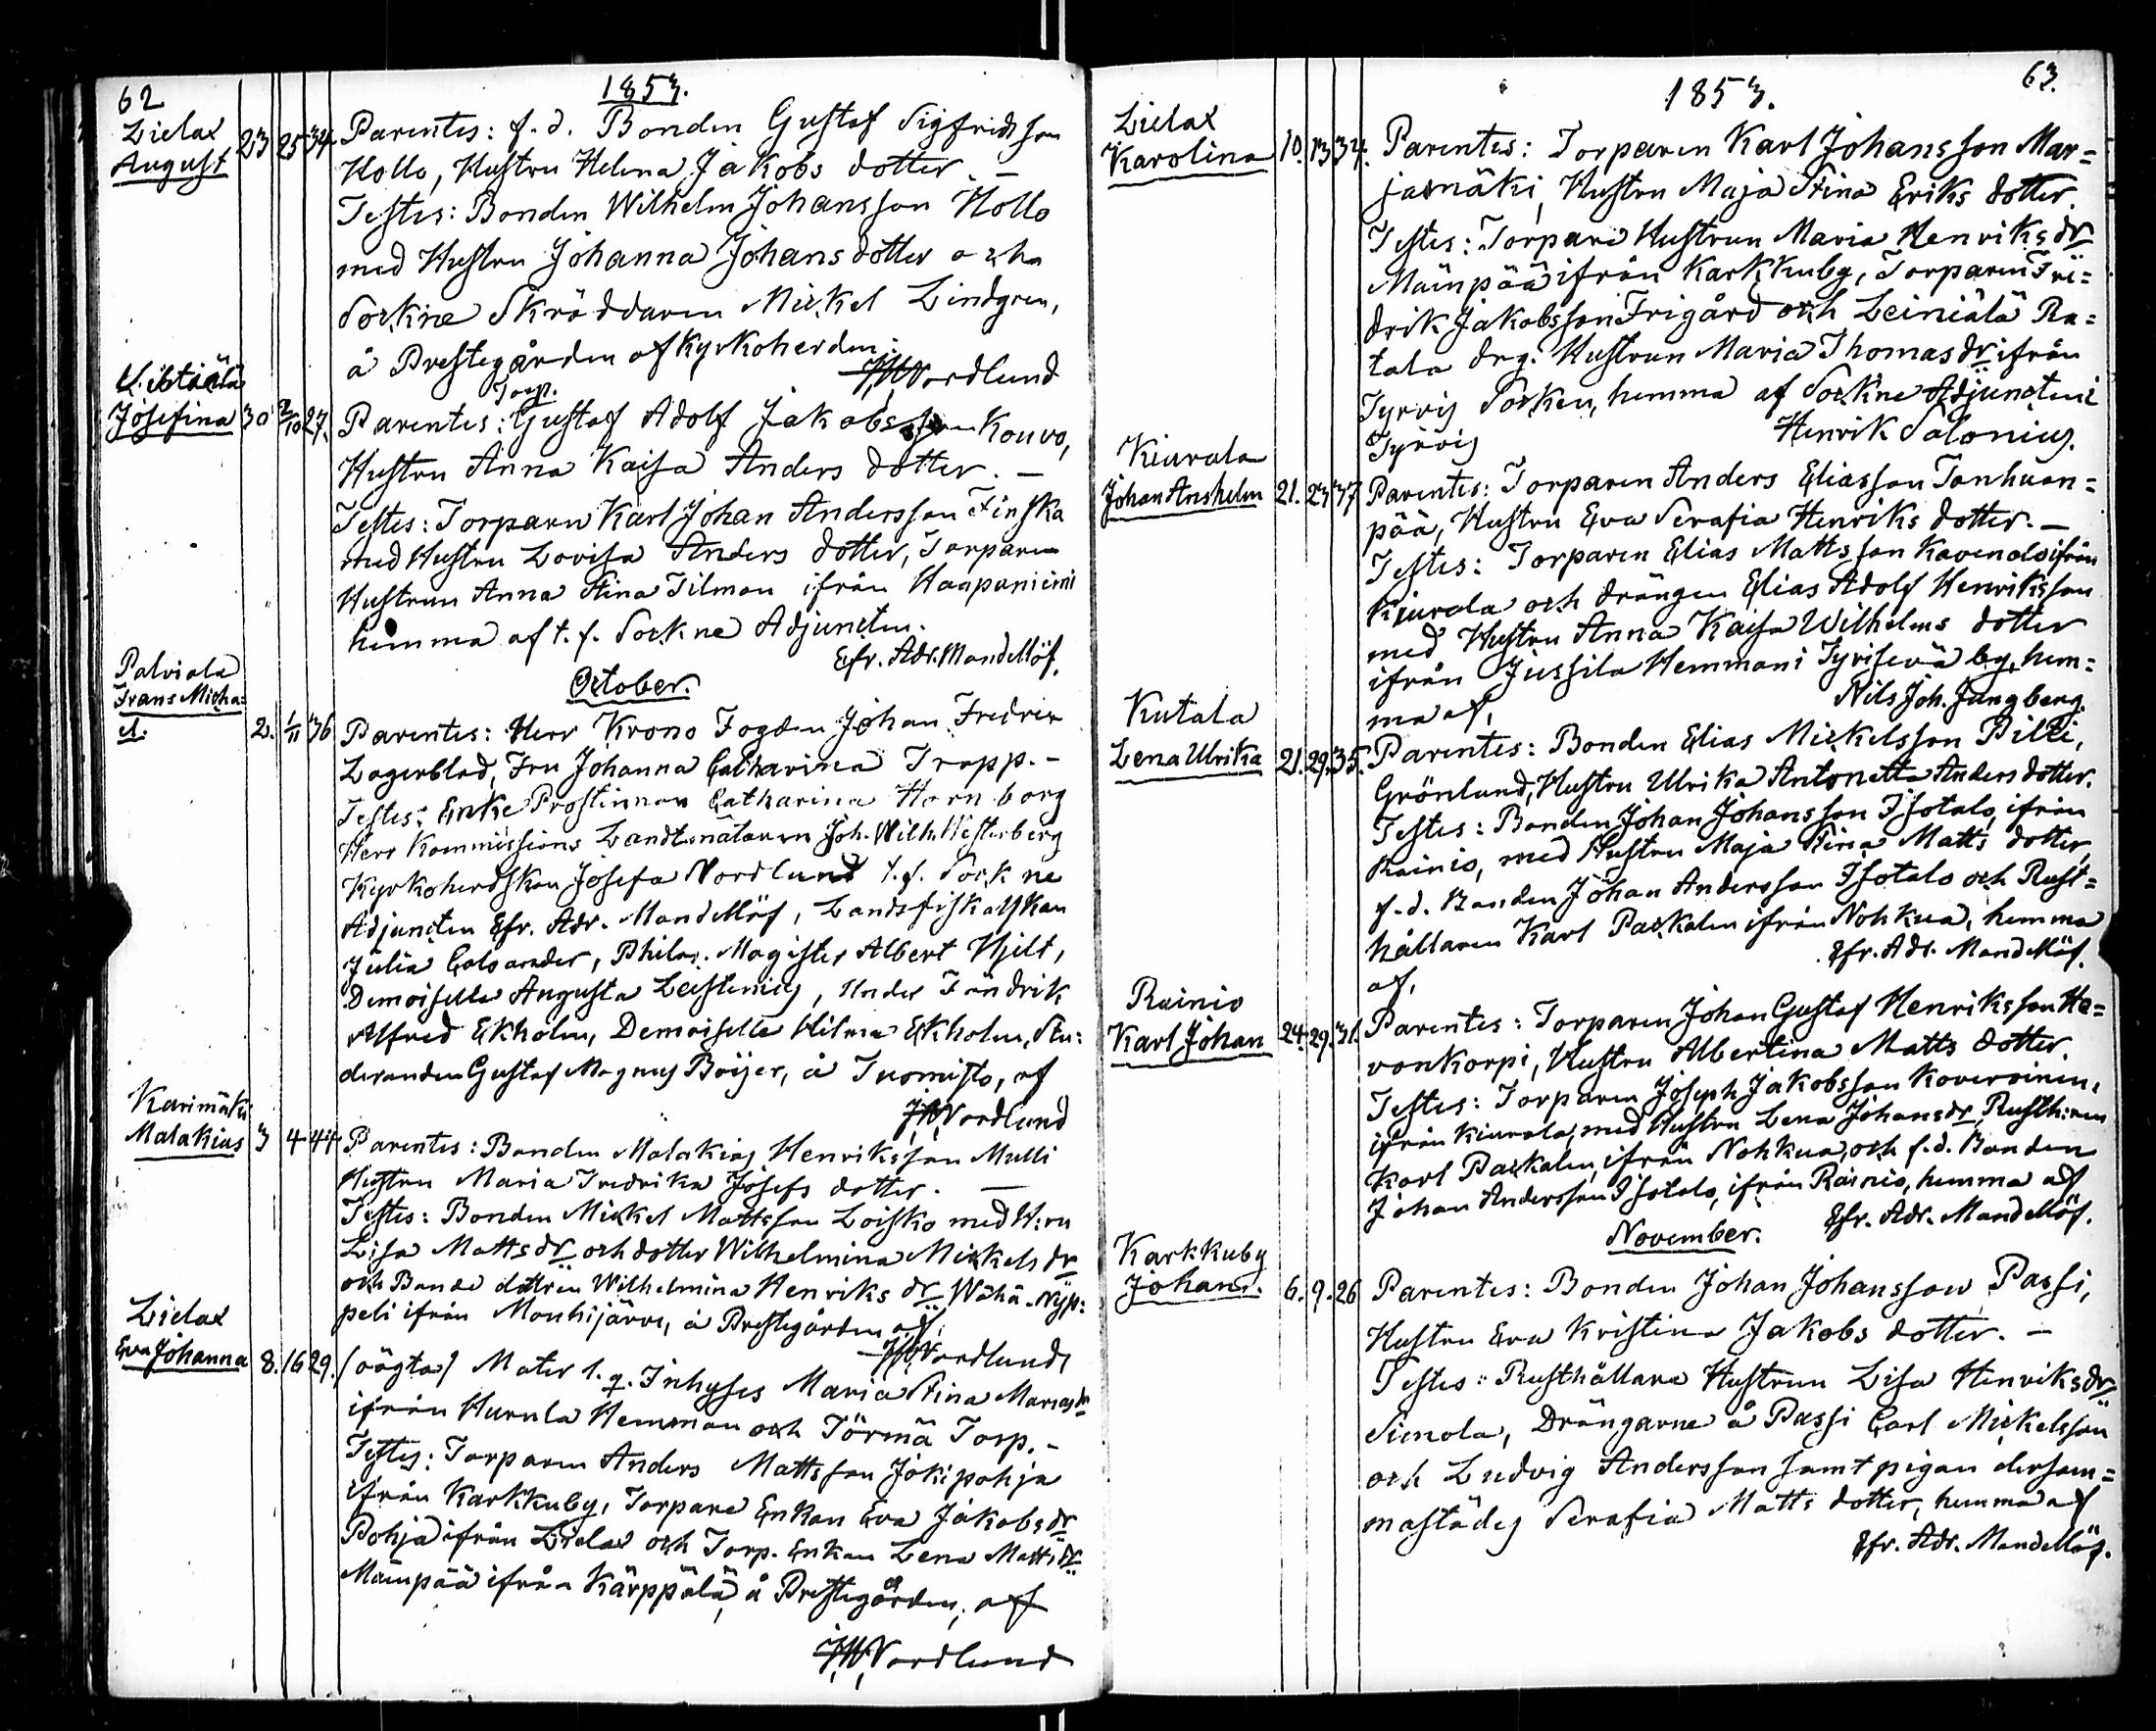 62
1853.
Lielax
August 23 25 34. Parentes: f. d. Bonden Gustaf Sigfridsson
Hollo, Hustru Helena Jakobs dotter. –
Testes: Bonden Wilhelm Johansson Hollo
med Hustru Johanna Johans dotter och
Sockne Skräddaren Mickel Lindgren,
å Prestegården af Kyrkoherden:
JW Nordlund
Liktiälä
Torp.
Josefina 30 2/10 27. Parentes: Gustaf Adolf Jakobsson Kouvo,
Hustru Anna Kaisa Anders dotter. –
Testes: Torparen Karl Johan Andersson Finska
med Hustru Lovisa Anders dotter, Torpare
Hustrun Anna Stina Tilman ifrån Haapaniemi
hemma af t. f. Sockne Adjuncten.
Efr. Adr. Mandellöf.
October.
Palviala
Frans Micha=
el. 2. 1/11 36 Parentes: Herr Krono Fogden Johan Fredric
Lagerblad, Fru Johanna Catharina Trapp. –
Testes: Enke Prostinnan Catharina Hornborg
Herr Kommissions Landtmätaren Joh. Wilh. Westerberg
Kyrkoherdskan Josefa Nordlund t. f. Sockne
Adjuncten Efr. Adr. Mandellöf, Landsfiskalskan
Julia Calsander, Philos. Magister Albert Hjelt,
Demoiselle Augusta Leistenius, Under Fändrik
Alfred Ekholm, Demoiselle Hilma Ekholm, Stu=
deranden Gustaf Magnus Böijer, å Tuomisto, af
JW Nordlund
Karimäki
Malakias 3 4 44 Parentes: Bonden Malakias Henriksson Mulli
Hustru Maria Fredrika Josefs dotter. –
Testes: Bonden Mickel Mattsson Loisko med H:ru
Lisa Matts dr och dotter Wilhelmina Mickels dr
och Bonde dottren Wilhelmina Henriks dr Wähä-Nyp=
peli ifrån Mouhijärvi, å Prestegården af,
JW Nordlund
Lielax
Eva Johanna 8. 16 29. (oägta) Mater l. q. Inhyses Maria Stina Marias dr
ifrån Hurula Hemman och Törmä Torp. –
Testes: Torparen Anders Mattsson Jokipohja
ifrån Karkkuby, Torpare Enkan Eva Jakobs dr
Pohja ifrån Lielax och Torp. Enkan Lena Matts dr
Mäinpää ifrån Kärppälä, å Prestegården, af
JW Nordlund
63.
1853.
Lielax
Karolina 10. 13 34. Parentes: Torparen Karl Johansson Mar=
jamäki, Hustru Maja Stina Eriks dotter.
Testes: Torpare Hustrun Maria Henriks dr
Mäinpää ifrån Karkkuby, Torparen Fri=
drik Jakobsson Frigård och Leiniälä Ra=
tala drg. Hustrun Maria Thomas dr ifrån
Tyrvis Socken, hemma af Sockne Adjuncten i
Tyrvis Henrik Salonius.
Kiurala
Johan Anshelm 21. 23 37 Parentes: Torparen Anders Eliasson Tanhuan=
pää, Hustru Eva Serafia Henriks dotter. –
Testes: Torparen Elias Mattsson Kavenolo ifrån
Kiurala och drängen Elias Adolf Henriksson
med Hustru Anna Kaisa Wilhelms dotter
ifrån Jussila Hemman i Tyrisevä by, hem=
ma af, Nils Joh. Jungberg.
Kutala
Lena Ulrika 21. 29. 35. Parentes: Bonden Elias Mickelsson Pilli,
Grönlund, Hustru Ulrika Antonetta Anders dotter.
Testes: Bonden Johan Johansson Isotalo, ifrån
Rainio, med Hustru Maja Stina Matts dotter,
f. d. Bonden Johan Andersson Isotalo och Rust=
hållaren Karl Packalen ifrån Nohkua, hemma
af, Efr. Adr. Mandellöf.
Rainio
Karl Johan 24. 29. 31. Parentes: Torparen Johan Gustaf Henriksson Ha=
vonkorpi, Hustru Albertina Matts dotter.
Testes: Torparen Joseph Jakobsson Koveroinen,
ifrån Kiurala, med Hustru Lena Johans dr, Rusth:ren
Karl Packalen, ifrån Nohkua, och f. d. Bonden
Johan Andersson Isotalo, ifrån Rainio, hemma af
Efr. Adr. Mandellöf.
November.
Karkkuby
Johan. 6. 9. 26 Parentes: Bonden Johan Johansson Passi,
Hustru Eva Kristina Jakobs dotter. –
Testes: Rusthållare Hustrun Lisa Henriks dr
Simola, Drängarne å Passi Carl Mickelsson
och Ludvig Andersson samt pigan dersam=
mastädes Serafia Matts dotter, hemma af
Efr. Adr. Mandellöf.